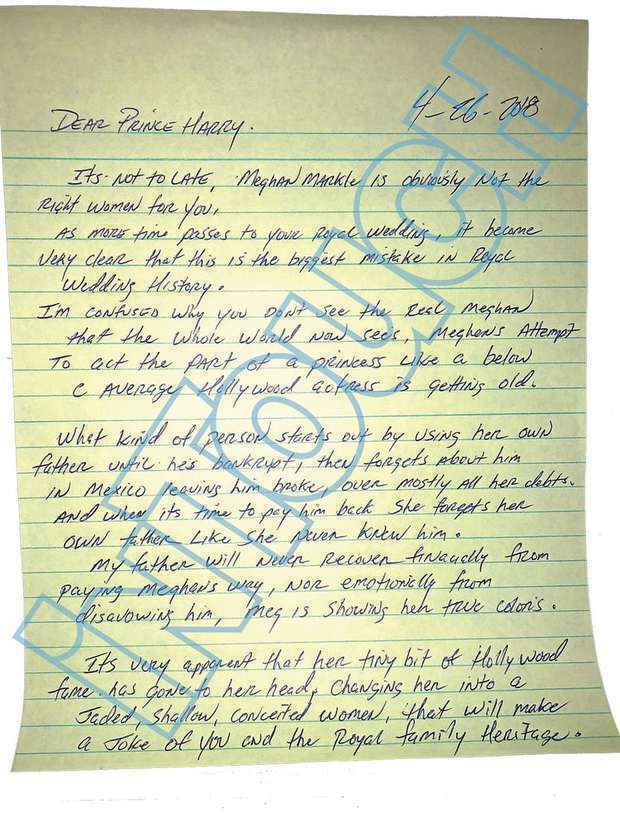 4-26-2018
DEAR PRINCE HARRY.
It's. NOT TO LATE, Meghan Markle is obviously Not the
Right women for you,
AS MORE time passes to your Royal wedding, it became
Very clear that this is the biggest mistake in Royal
Wedding History.
I'M CONFUSED why you DON'T see the Real Meghan
that the whole world Now sees, Meghans Attempt
To act the PART of a princess Like a below
C AVERAGE Hollywood actress is getting old.
What kind of person starts out by using her own
father until he's bankrupt, then forgets about him
IN Mexico leaving him broke, over mostly all her debts.
And when its time to pay him back She forgets her
OWN father Like She Never Knew him.
My father will Never Recover finacially from
paying Meghans way, NOR emotionally from
disavowing him, Meg is showing her true colors.
It's very apparent that her tiny bit of Hollywood
fame. has gone to her head, Changing her into a
Jaded, Shallow, conceited women, that will make
a Joke of you and the Royal family Heritage.
INTOUCH